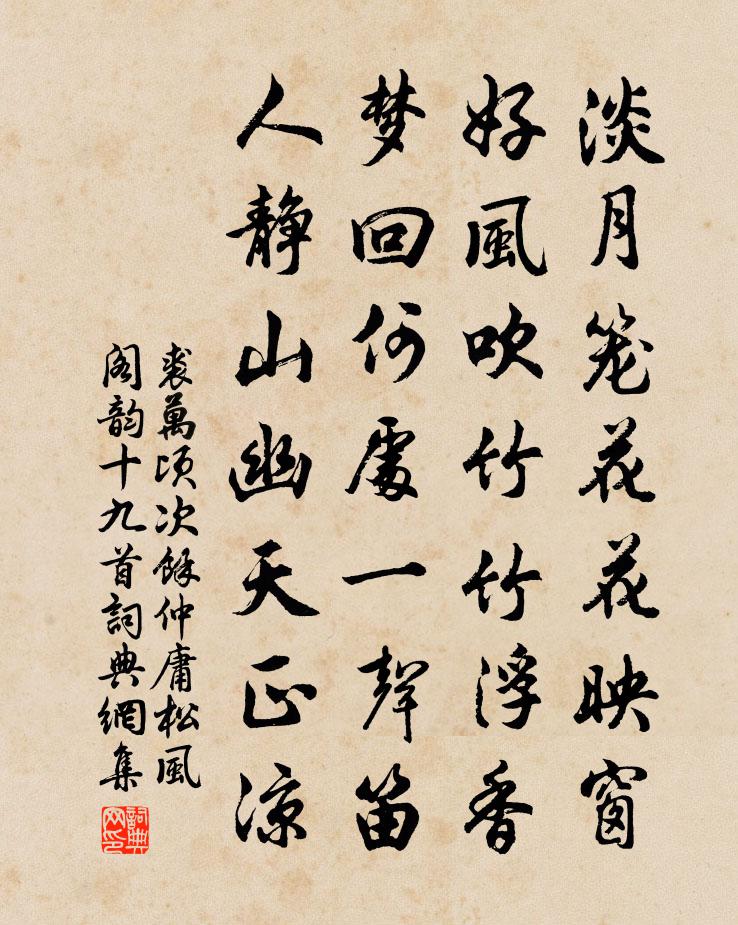 淡月笼花花映窗
好風吹竹竹浮香
梦回何處一聲笛
人靜山幽天正涼
裘萬頃次餘仲庸松風
阁韵十九首詞典網集
詞典
网印